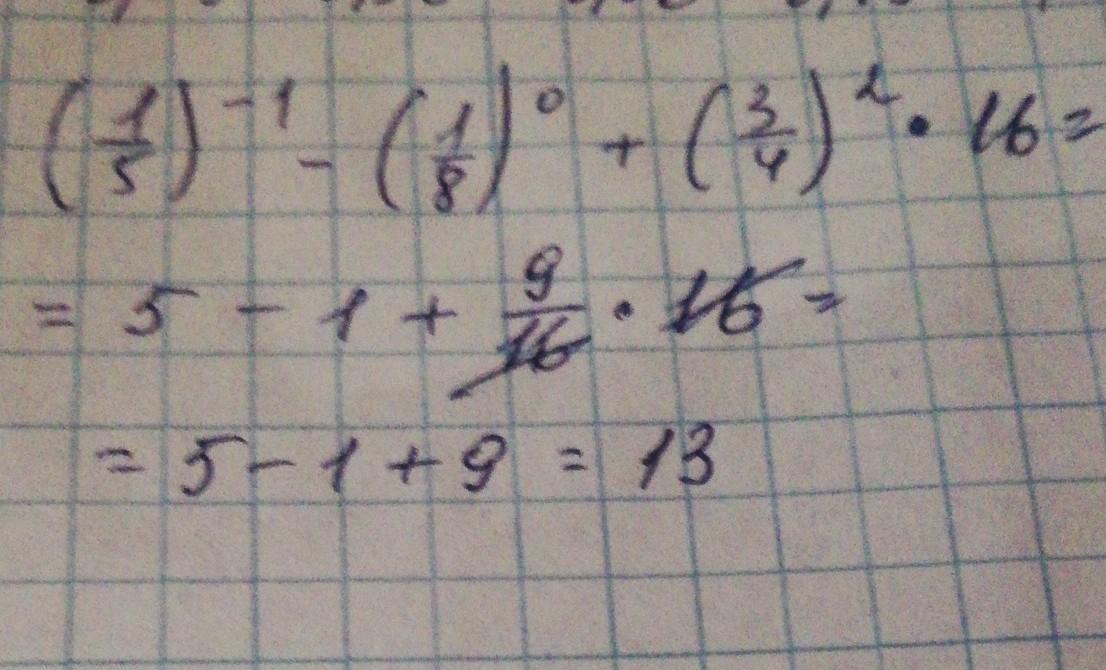 (1/5)^-1 - (1/8)^0 + (3/4)^2 · 16 =
= 5 - 1 + 9/16 · 16 =
= 5 - 1 + 9 = 13